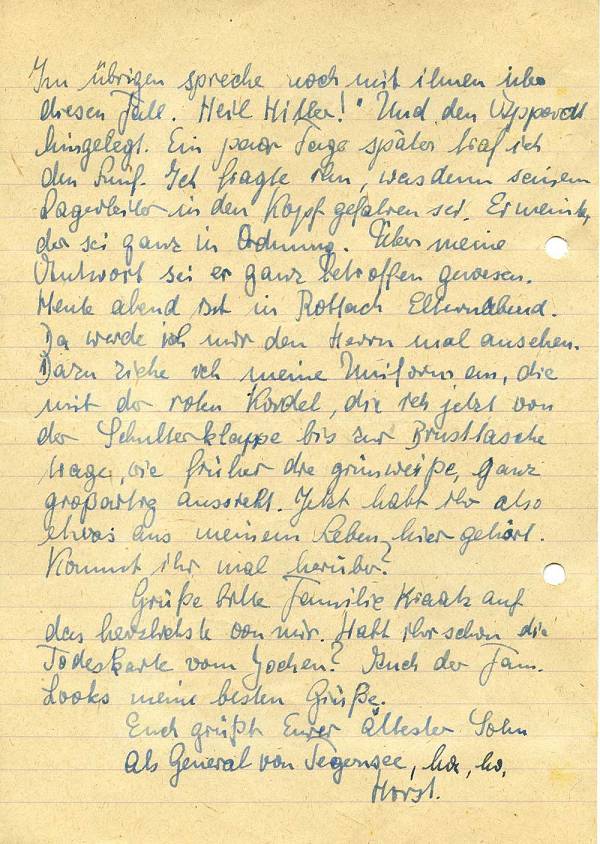 Im übrigen spreche noch mit ihnen über
diesen Fall. Heil Hitler!" Und den Apparat
hingelegt. Ein paar Tage später traf ich
den. Ich fragte ihn, was denn seinem
Lagerleiter in den Kopf gefahren sei. Er meinte,
der sei ganz in Ordnung. Über meine
Antwort sei er ganz betroffen gewesen.
Heute abend ist in Rottach Elternabend.
Da werde ich mir den Herrn mal ansehen.
Dazu ziehe ich meine Uniform an, die
mit der roten Kordel, die ich jetzt von
der Schulterklappe bis zur Brusttasche
trage, wie früher die grünweiße, ganz
großartig aussieht. Jetzt habt ihr also
etwas aus meinem Leben hier gehört.
Kommt ihr mal herüber?
Grüße bitte Familie Kraatz auf
das herzlichste von mir. Habt ihr schon die
Todeskarte vom Jochen? Auch der Fam.
Looks meine besten Grüße.
Euch grüßt Eurer ältester Sohn
als General von Tegernsee, ha, ha,
Horst.